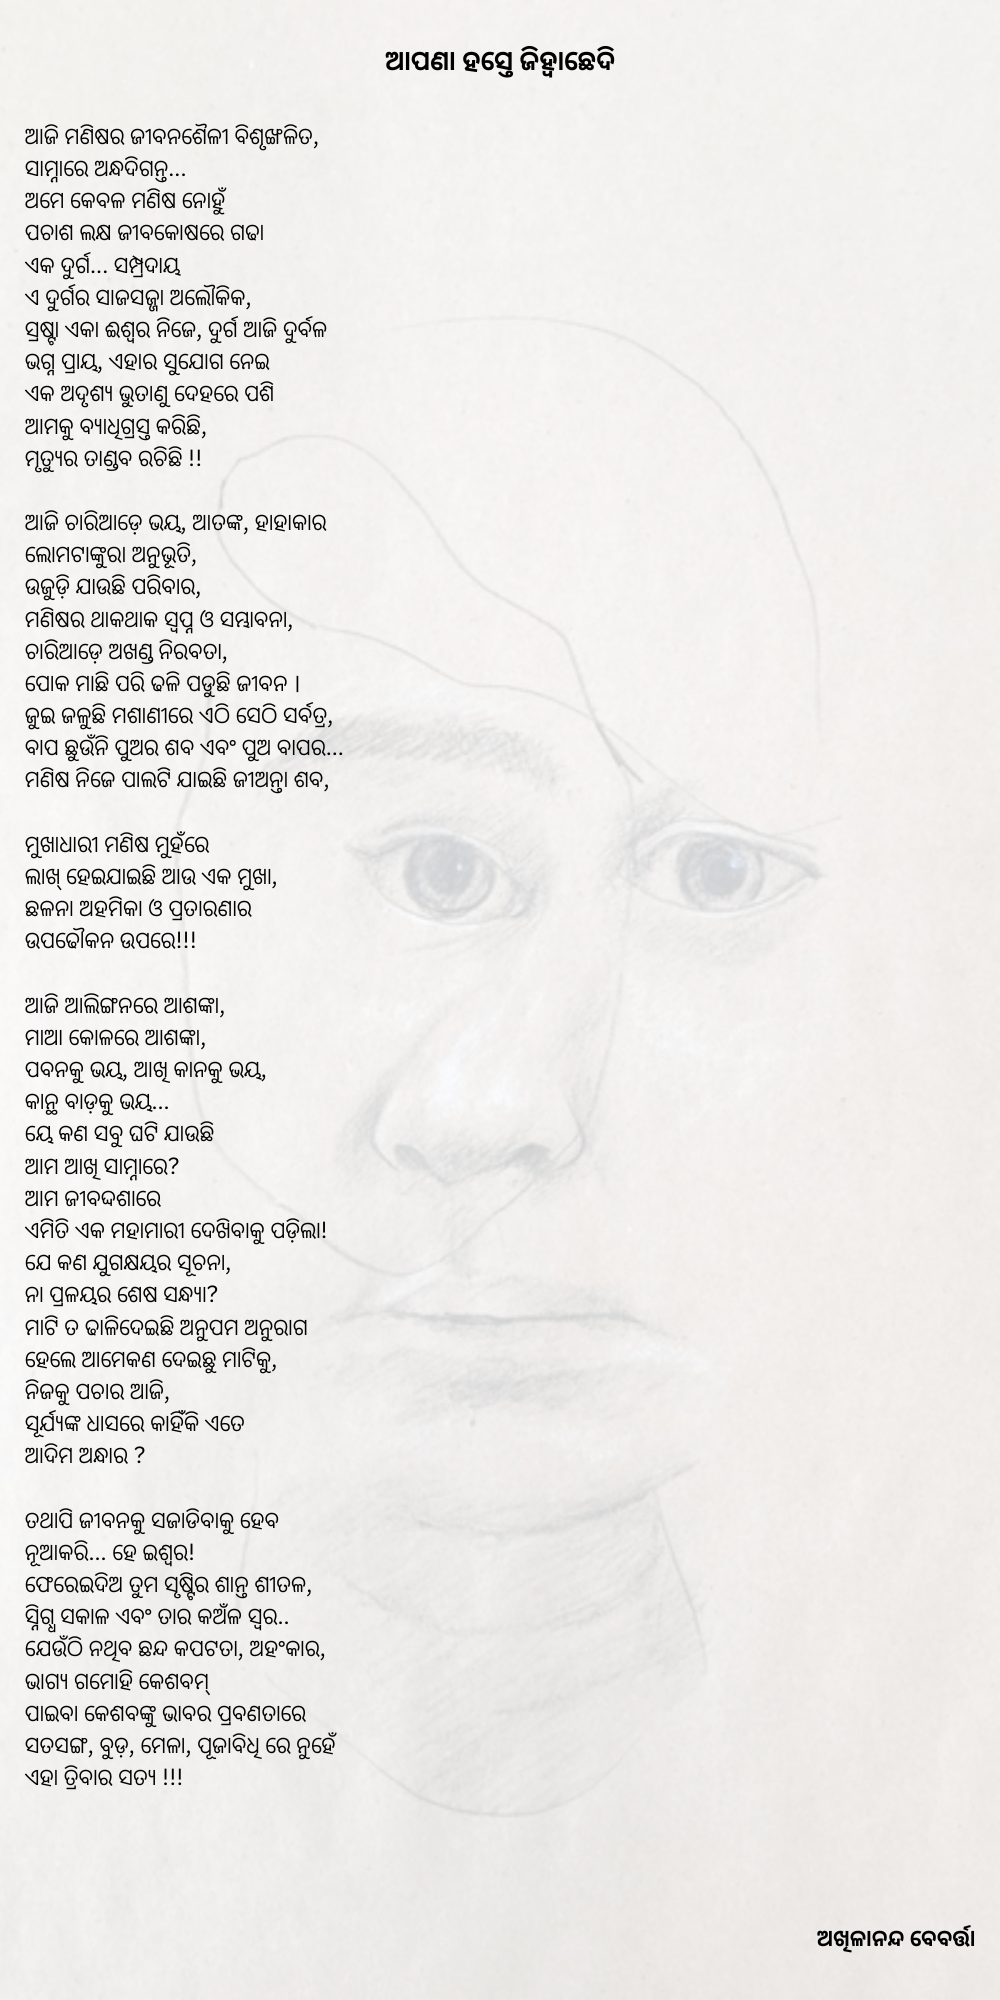 ଆପଣା ହସ୍ତେ ଜିହ୍ୱାଛେଦି
ଆଜି ମଣିଷର ଜୀବନଶୈଳୀ ବିଶୃଙ୍ଖଳିତ,
ସାମ୍ନାରେ ଅନ୍ଧଦିଗନ୍ତ...
ଅମେ କେବଳ ମଣିଷ ନୋହୁଁ
ପଚାଶ ଲକ୍ଷ ଜୀବକୋଷରେ ଗଢା
ଏକ ଦୁର୍ଗ... ସମ୍ପ୍ରଦାୟ
ଏ ଦୁର୍ଗର ସାଜସଜ୍ଜା ଅଲୌକିକ,
ସ୍ରଷ୍ଟା ଏକା ଈଶ୍ୱର ନିଜେ, ଦୁର୍ଗ ଆଜି ଦୁର୍ବଳ
ଭଗ୍ନ ପ୍ରାୟ, ଏହାର ସୁଯୋଗ ନେଇ
ଏକ ଅଦୃଶ୍ୟ ଭୁତାଣୁ ଦେହରେ ପଶି
ଆମକୁ ବ୍ୟାଧିଗ୍ରସ୍ତ କରିଛି,
ମୃତ୍ୟୁର ତାଣ୍ଡବ ରଚିଛି !!
ଆଜି ଚାରିଆଡ଼େ ଭୟ, ଆତଙ୍କ, ହାହାକାର
ଲୋମଟାଙ୍କୁରା ଅନୁଭୂତି,
ଉଜୁଡ଼ି ଯାଉଛି ପରିବାର,
ମଣିଷର ଥାକଥାକ ସ୍ୱପ୍ନ ଓ ସମ୍ଭାବନା,
ଚାରିଆଡ଼େ ଅଖଣ୍ଡ ନିରବତା,
ପୋକ ମାଛି ପରି ଢଳି ପଡୁଛି ଜୀବନ ।
ଜୁଇ ଜଳୁଛି ମଶାଣୀରେ ଏଠି ସେଠି ସର୍ବତ୍ର,
ବାପ ଛୁଉଁନି ପୁଅର ଶବ ଏବଂ ପୁଅ ବାପର...
ମଣିଷ ନିଜେ ପାଲଟି ଯାଇଛି ଜୀଅନ୍ତା ଶବ,
ମୁଖାଧାରୀ ମଣିଷ ମୁହଁରେ
ଲାଖ୍ ହେଇଯାଇଛି ଆଉ ଏକ ମୁଖା,
ଛଳନା ଅହମିକା ଓ ପ୍ରତାରଣାର
ଉପଢୌକନ ଉପରେ!!!
ଆଜି ଆଲିଙ୍ଗନରେ ଆଶଙ୍କା,
ମାଆ କୋଳରେ ଆଶଙ୍କା,
ପବନକୁ ଭୟ, ଆଖି କାନକୁ ଭୟ,
କାନ୍ଥ ବାଡ଼କୁ ଭୟ...
ୟେ କଣ ସବୁ ଘଟି ଯାଉଛି
ଆମ ଆଖି ସାମ୍ନାରେ?
ଆମ ଜୀବଦ୍ଦଶାରେ
ଏମିତି ଏକ ମହାମାରୀ ଦେଖିବାକୁ ପଡ଼ିଲା!
ଯେ କଣ ଯୁଗକ୍ଷୟର ସୂଚନା,
ନା ପ୍ରଳୟର ଶେଷ ସନ୍ଧ୍ୟା?
ମାଟି ତ ଢାଳିଦେଇଛି ଅନୁପମ ଅନୁରାଗ
ହେଲେ ଆମେକଣ ଦେଇଛୁ ମାଟିକୁ,
ନିଜକୁ ପଚାର ଆଜି,
ସୂର୍ଯ୍ୟଙ୍କ ଧାସରେ କାହିଁକି ଏତେ
ଆଦିମ ଅନ୍ଧାର ?
ତଥାପି ଜୀବନକୁ ସଜାଡିବାକୁ ହେବ
ନୂଆକରି... ହେ ଇଶ୍ୱର!
ଫେରେଇଦିଅ ତୁମ ସୃଷ୍ଟିର ଶାନ୍ତ ଶୀତଳ,
ସ୍ନିଗ୍ଧ ସକାଳ ଏବଂ ତାର କଅଁଳ ସ୍ୱର..
ଯେଉଁଠି ନଥିବ ଛନ୍ଦ କପଟତା, ଅହଂକାର,
ଭାଗ୍ୟ ଗମୋହି କେଶବମ୍
ପାଇବା କେଶବଙ୍କୁ ଭାବର ପ୍ରବଣତାରେ
ସତସଙ୍ଗ, ବୁଡ଼, ମେଳା, ପୂଜାବିଧି ରେ ନୁହେଁ
ଏହା ତ୍ରିବାର ସତ୍ୟ !!!
ଅଖିଳାନନ୍ଦ ବେବର୍ତ୍ତା